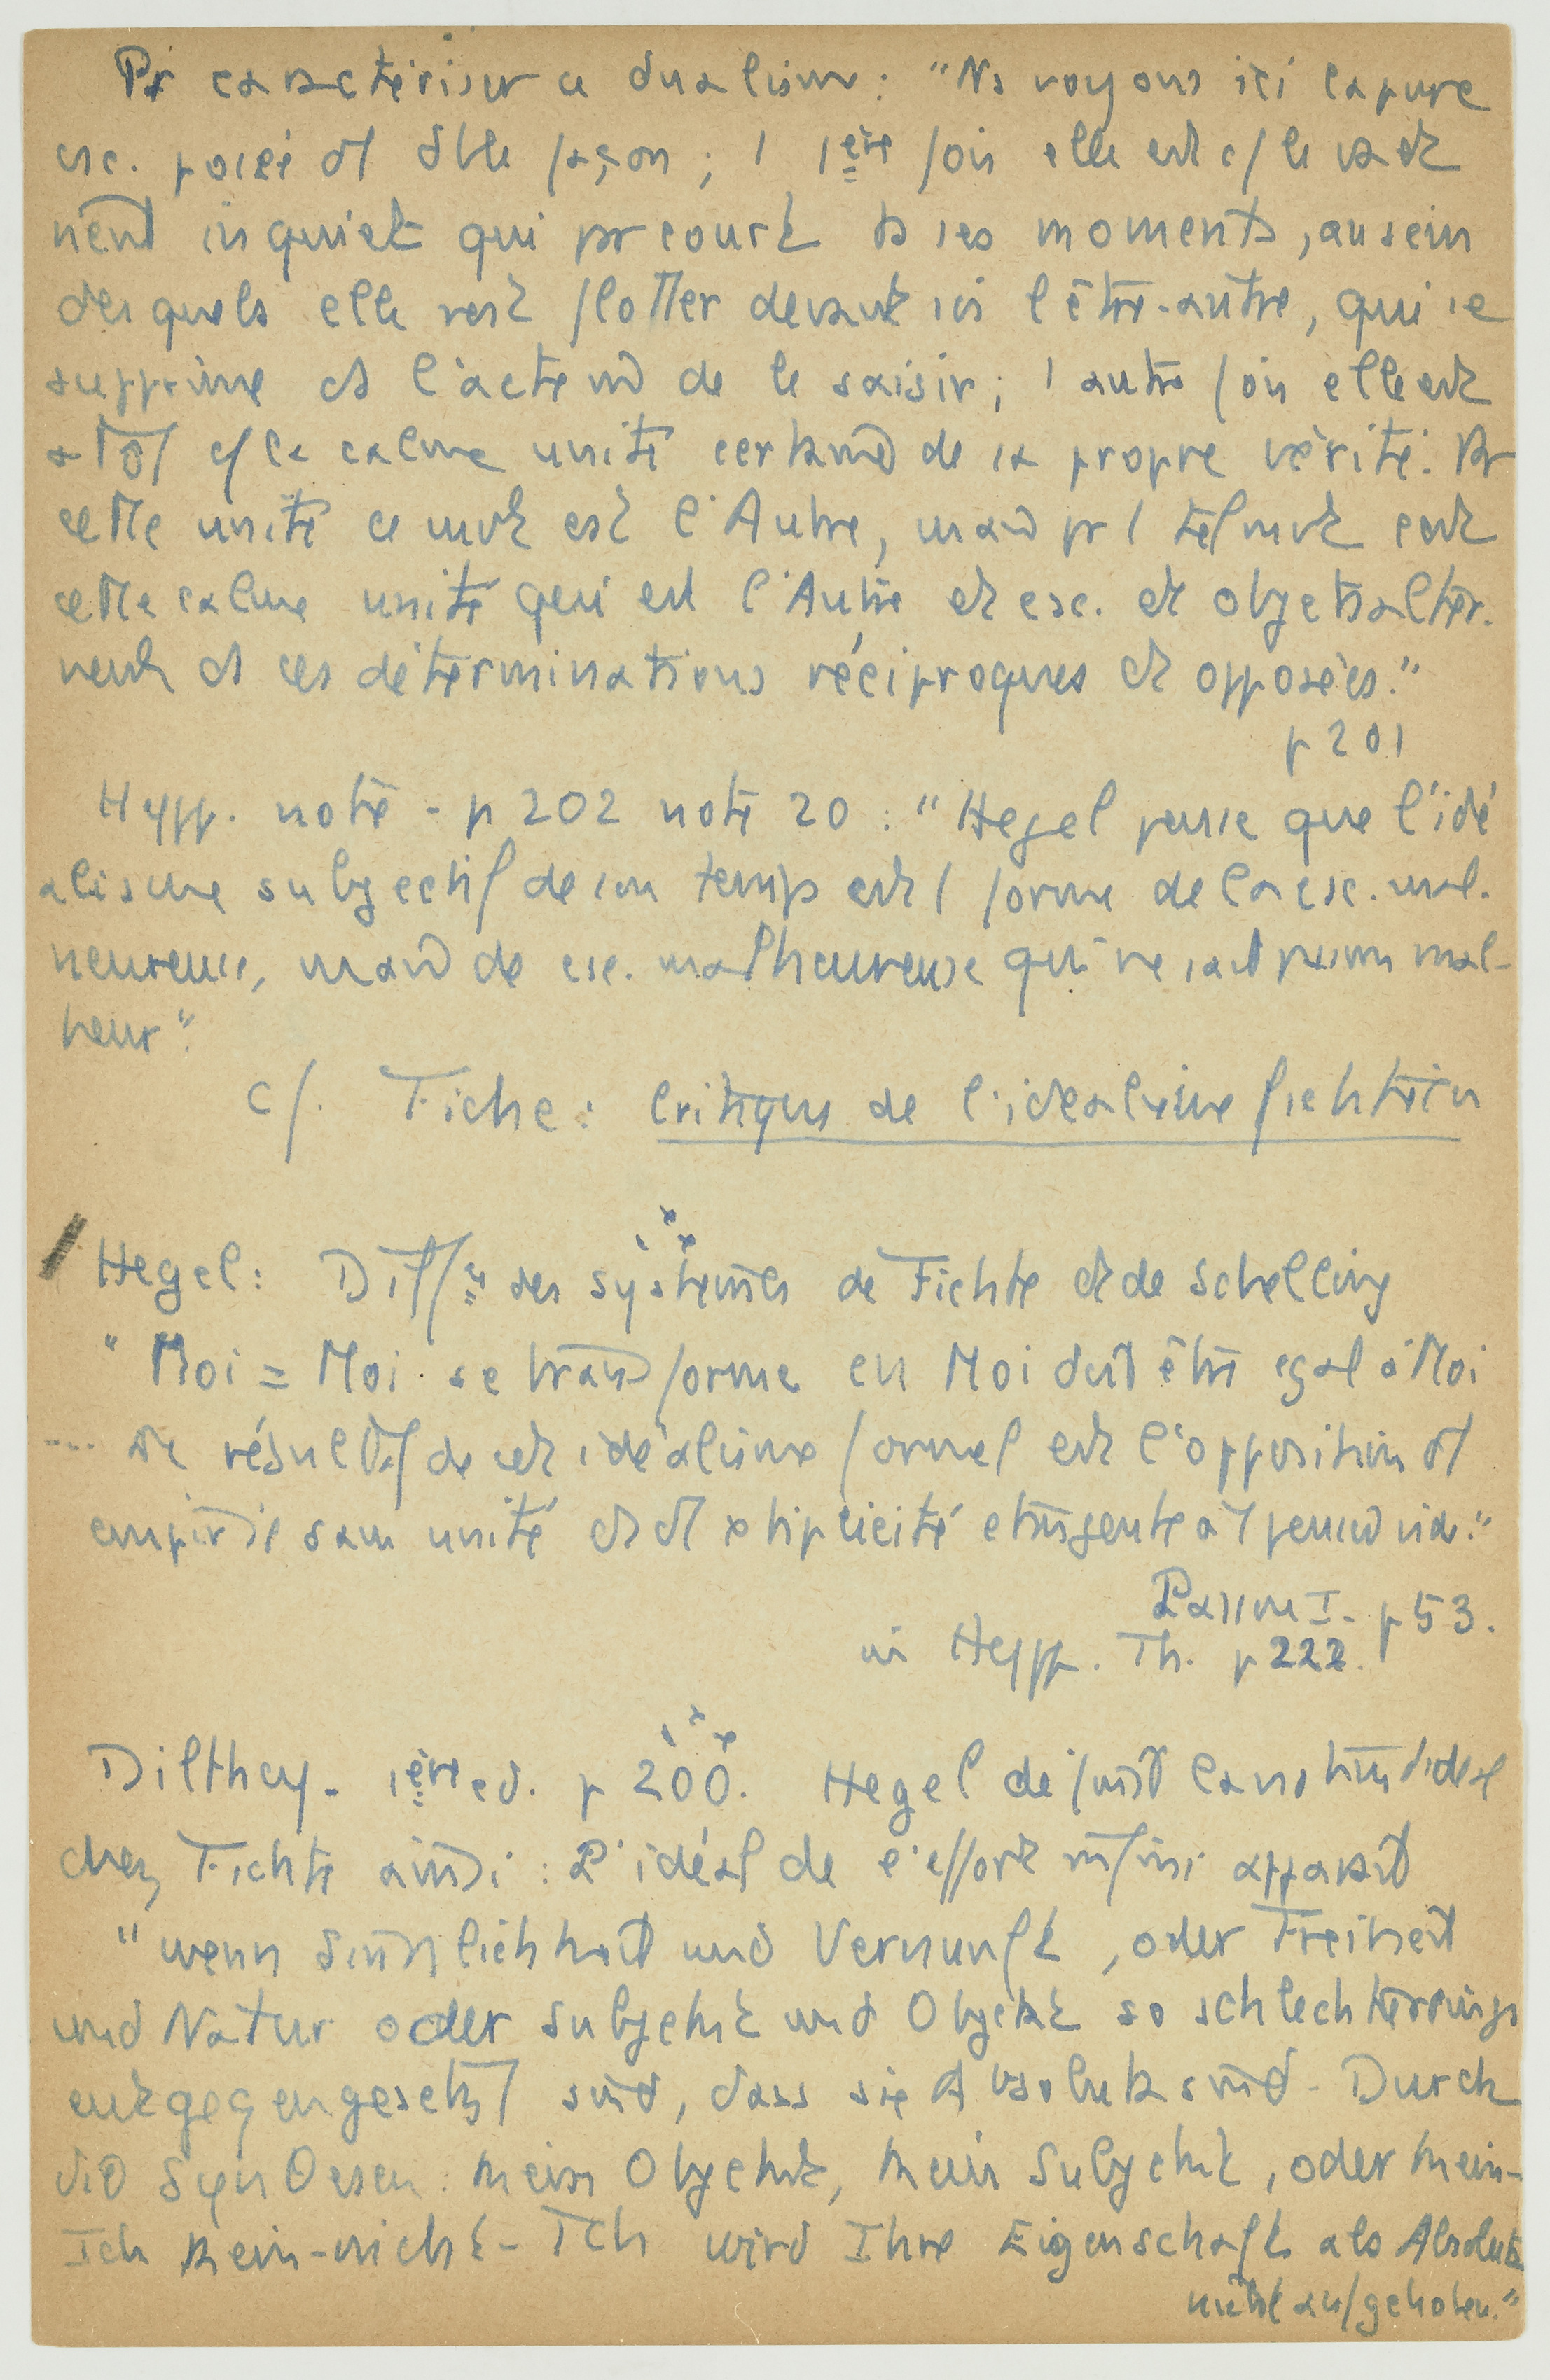 Pr caractériser ce dualisme : "Ns voyons ici la pure
csc. posée d'1 dble façon ; 1 1ère fois elle est c/ le va et
vient inquiet qui prcourt ts ses moments, au sein
desquels elle voit flotter devant soi l'être-autre, qui se
supprime ds l'acte md de le saisir ; 1 autre fois elle est
+ tôt c/ la calme unité certaine de sa propre vérité. Pr
cette unité ce mvt est l'Autre, mais pr 1 tel mvt c'est
cette calme unité qui est l'Autre et csc. et objet alter-
nent ds ces déterminations réciproques et opposées."
p 201
Hypp. note - p 202 note 20 : "Hegel pense que l'idé
alisme subjectif de son temps est 1 forme de la csc. mal-
heureuse, mais de csc. malheureuse qui ne sait pas son mal-
heur".
cf. Fiche : Critique de l'idéalisme fichtéen
Hegel : Diffce des systèmes de Fichte et de Schelling
"Moi = Moi se transforme en Moi doit être égal à Moi
... Le résultat de cet idéalisme formel est l'opposition d'1
empirie sans unité et d'1 x tiplicité contingente à 1 pensée vide."
Lasson I - p 53.
in Hypp. Th. p 222.
Dilthey - 1ère ed. p 200. Hegel définit la notion d'idéal
chez Fichte ainsi : L'idéal de l'effort infini apparaît
"wenn Sinnlichkeit und Vernunft, oder Freiheit
und Natur oder Subjekt und Objekt so schlechterdings
entgegengesetzt sind, dass sie Absoluta sind - Durch
die Synthesen : kein Objekt, kein Subjekt, oder kein-
Ich kein-nicht-Ich wird Ihre Eigenschaft als Absoluta
nicht aufgehoben."